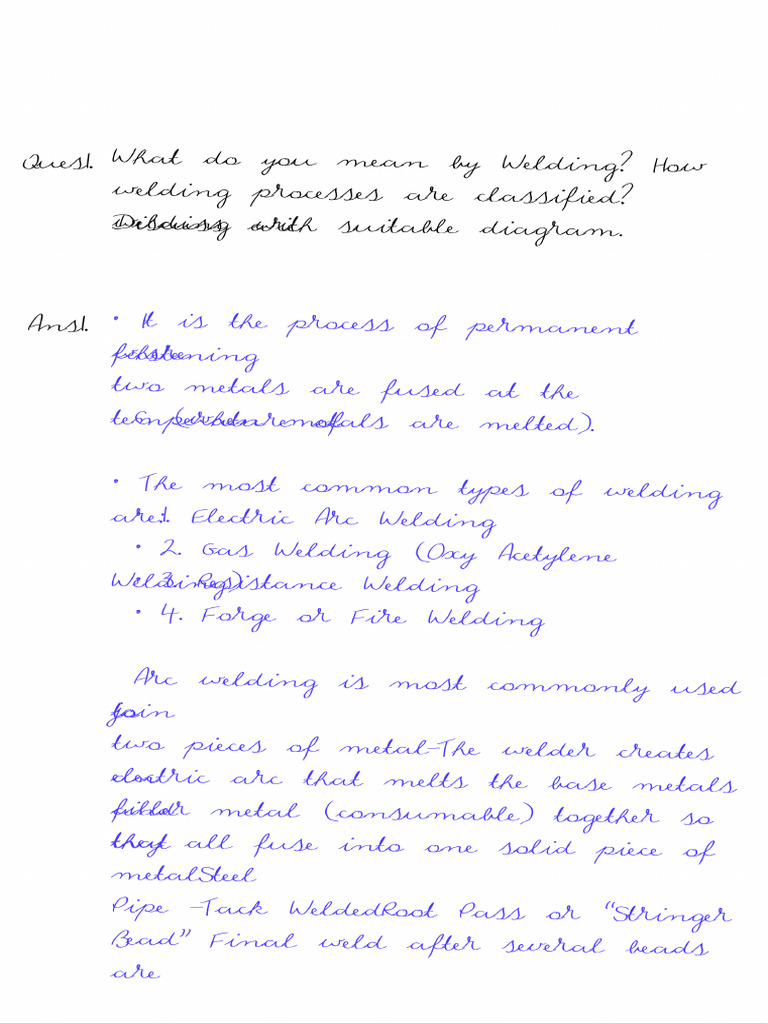 Ques1. What do you mean by Welding? How
welding processes are classified?
with suitable diagram.
Ans1. • It is the process of permanent
two metals are fused at the
metals are melted).
• The most common types of welding
are:1. Electric Arc Welding
• 2. Gas Welding (Oxy Acetylene
Welding) • 3. Resistance Welding
• 4. Forge or Fire Welding
Arc welding is most commonly used
join
two pieces of metal-The welder creates
electric arc that melts the base metals
filler metal (consumable) together so
that all fuse into one solid piece of
metalSteel
Pipe -Tack WeldedRoot Pass or "Stringer
Bead" Final weld after several beads
are